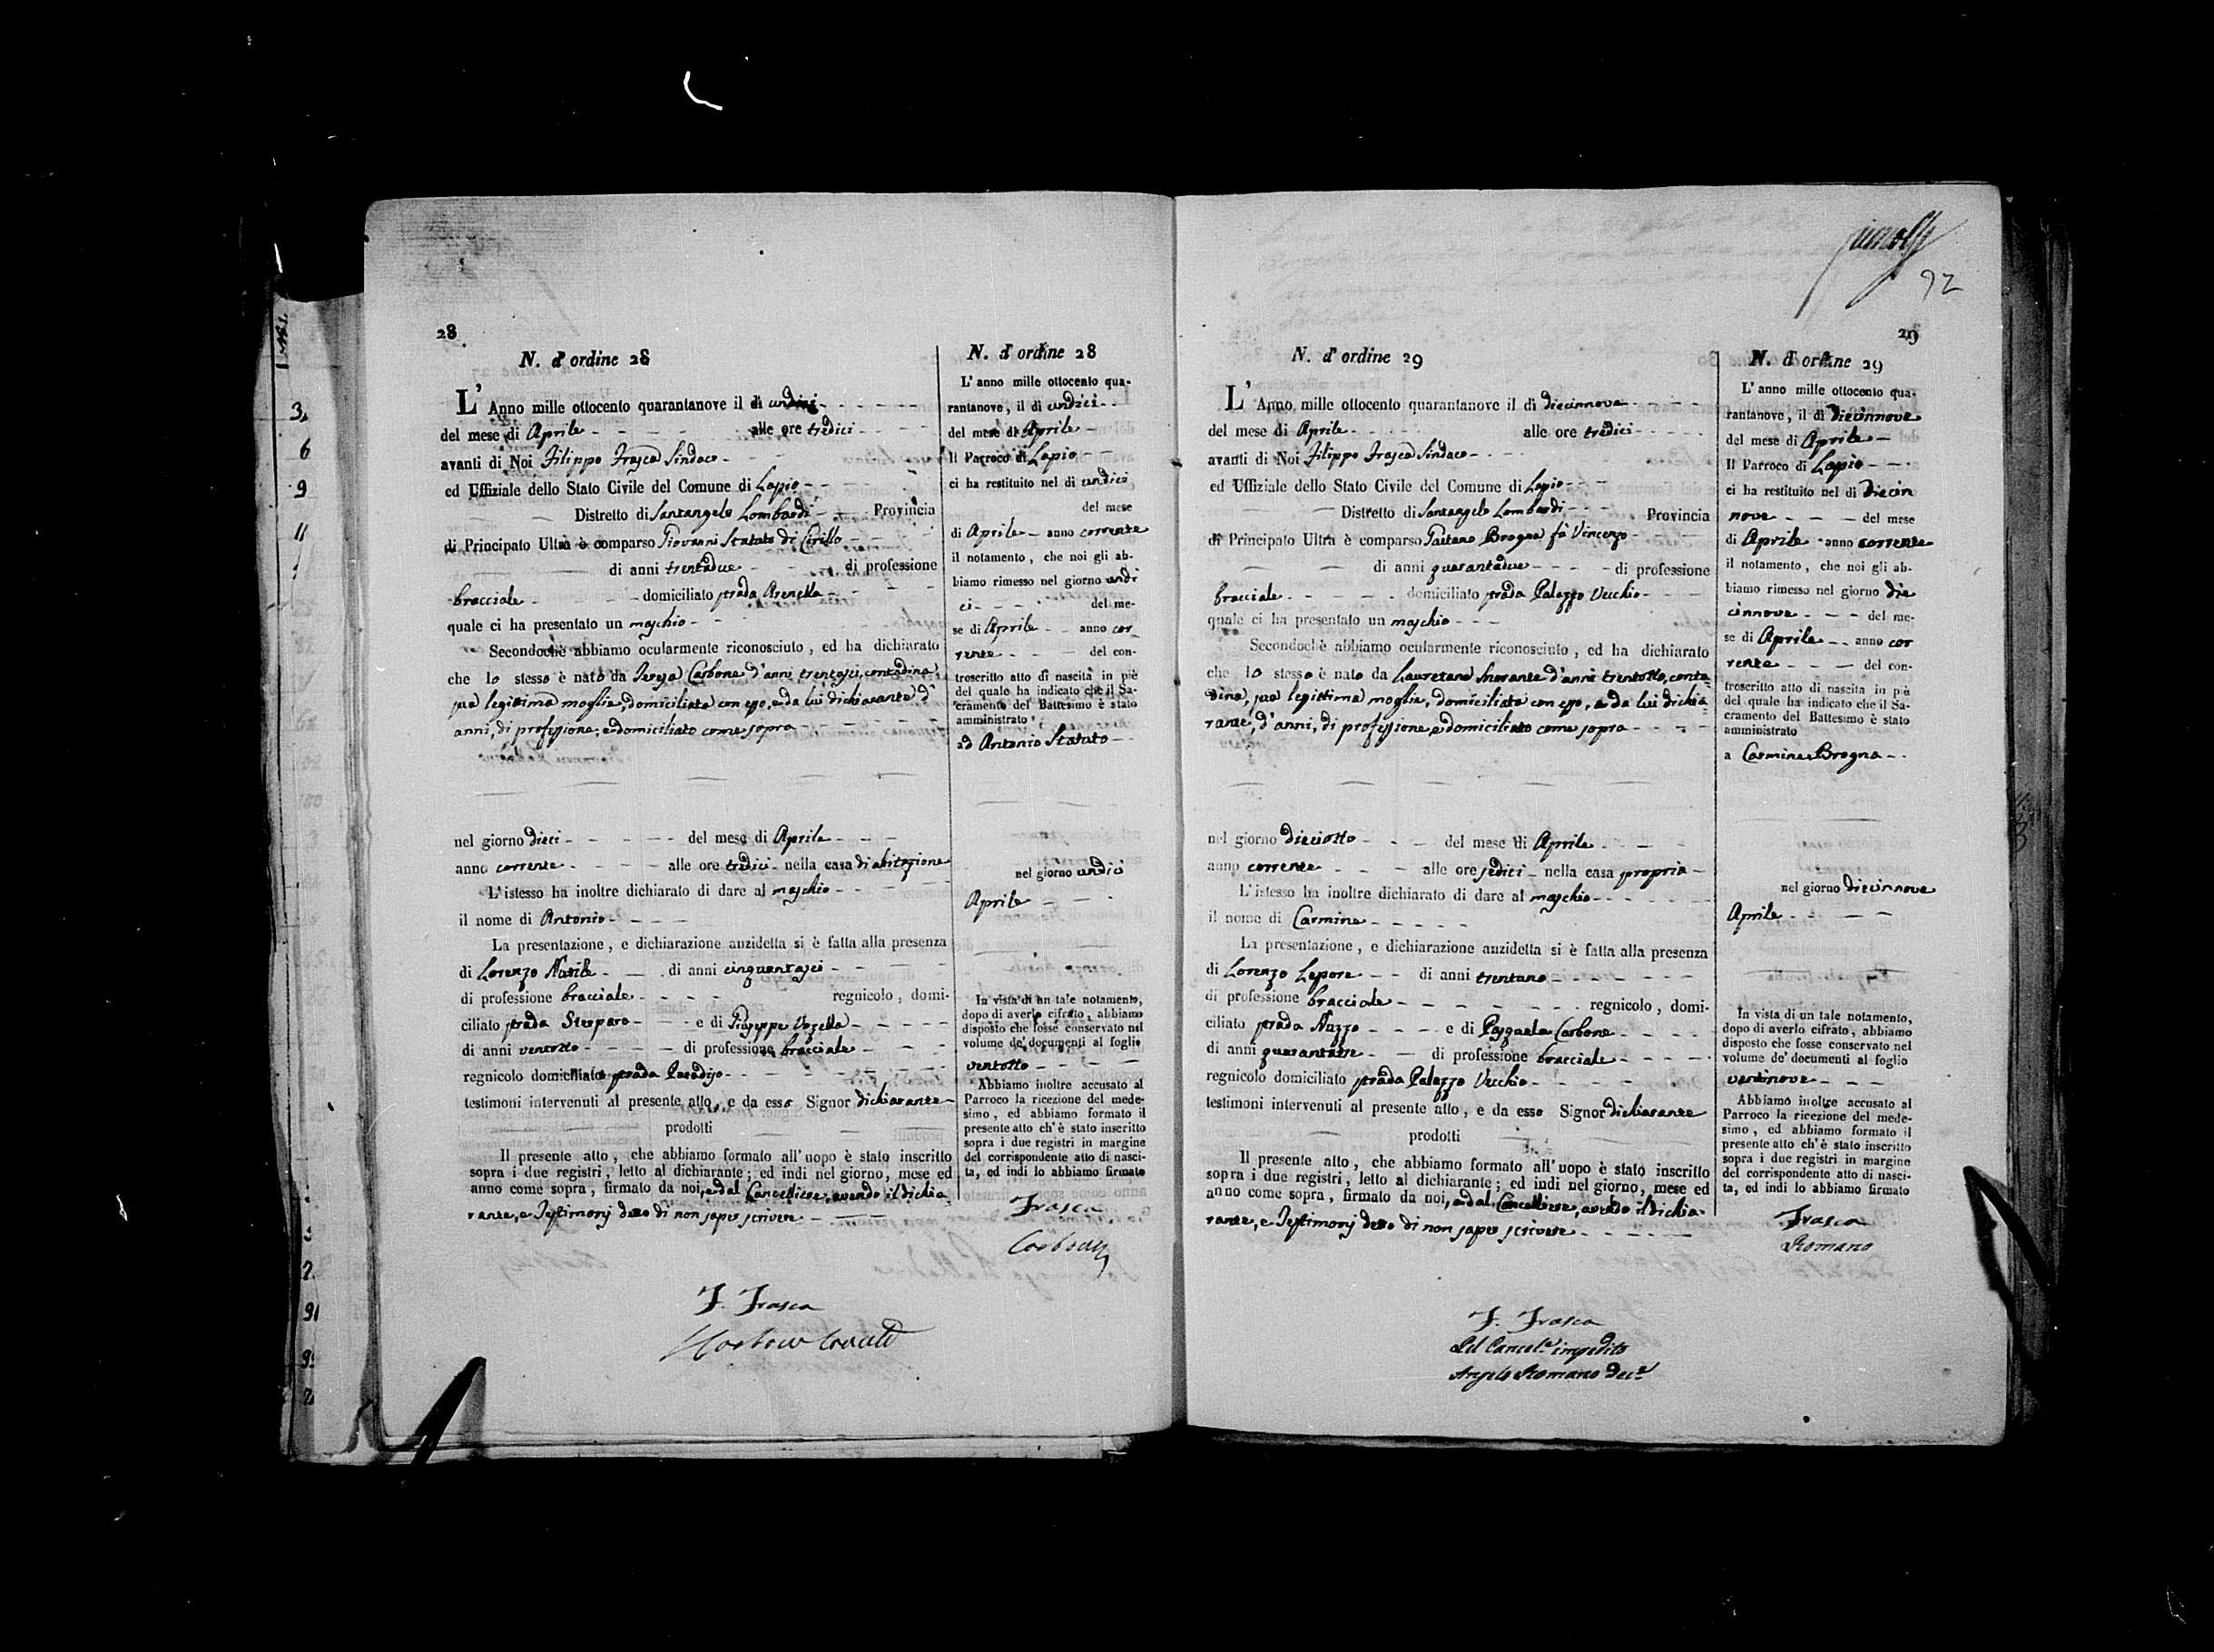 28
N. d'ordine 28
L' Anno mille ottocento quarantanove il di undici
del mese di Aprile alle ore tredici
avanti di Noi Filippo Frasca Sindaco
ed Uffiziale dello Stato Civile del Comune di Lapio
Distretto di Santangelo Lombardi Provincia
di Principato Ultra è comparso Giovanni Statuto di Cirillo
di anni trentadue di professione
bracciale domiciliato strada Arenella
quale ci ha presentato un maschio
Secondochè abbiamo ocularmente riconosciuto, ed ha dichiarato
che lo stesso è nato da Teresa Carbone d'anni trentasei, contadina
sua legittima moglie, domiciliata con esso, e da lui dichiarante d'
anni, di professione, e domiciliato come sopra
nel giorno dieci del mese di Aprile
anno corrente alle ore tredici nella casa di abitazione
L'istesso ha inoltre dichiarato di dare al maschio
il nome di Antonio
La presentazione, e dichiarazione anzidetta si è fatta alla presenza
di Lorenzo di anni cinquantasei
di professione bracciale regnicolo, domi-
ciliato strada Sterparo e di Giuseppe Vozella
di anni ventotto di professione bracciale
regnicolo domiciliato strada Paradiso
testimoni intervenuti al presente atto, e da esso Signor dichiarante
prodotti
Il presente atto, che abbiamo formato all'uopo è stato inscritto
sopra i due registri, letto al dichiarante; ed indi nel giorno, mese ed
anno come sopra, firmato da noi, e dal Cancelliere, avendo il dichia
rante, e Testimonj detto di non saper scrivere
F. Frasca
N. d'ordine 28
L'anno mille ottocento qua-
rantanove, il di undici
del mese di Aprile
Il Parroco di Lapio
ci ha restituito nel di undici
del mese
di Aprile anno corrente
il notamento, che noi gli ab-
biamo rimesso nel giorno undi
ci del me-
se di Aprile anno cor
rente del con-
troscritto atto di nascita in piè
del quale ha indicato che il Sa-
cramento del Battesimo è stato
amministrato
ad Antonio Statuto
nel giorno undici
Aprile
In vista di un tale notamento,
dopo di averlo cifrato, abbiamo
disposto che fosse conservato nel
volume de' documenti al foglio
ventotto
Abbiamo inoltre accusato al
Parroco la ricezione del mede-
simo, ed abbiamo formato il
presente atto ch'è stato inscritto
sopra i due registri in margine
del corrispondente atto di nasci-
ta, ed indi lo abbiamo firmato
Frasca
92
29
N. d'ordine 29
L' Anno mille ottocento quarantanove il di diecinnove
del mese di Aprile alle ore tredici
avanti di Noi Filippo Frasca Sindaco
ed Uffiziale dello Stato Civile del Comune di Lapio
Distretto di Santangelo Lombardi Provincia
di Principato Ultra è comparso Gaetano Brogna fù Vincenzo
di anni quarantadue di professione
bracciale domiciliato strada Palazzo Vecchio
quale ci ha presentato un maschio
Secondochè abbiamo ocularmente riconosciuto, ed ha dichiarato
che lo stesso è nato da Lauretana d'anni trentotto, conta
dina, sua legittima moglie, domiciliata con esso, e da lui dichia
rante, d'anni, di professione, e domiciliato come sopra
nel giorno dieciotto del mese di Aprile
anno corrente alle ore sedici nella casa propria
L'istesso ha inoltre dichiarato di dare al maschio
il nome di Carmine
La presentazione, e dichiarazione anzidetta si è fatta alla presenza
di Lorenzo Lepore di anni trentuno
di professione bracciale regnicolo, domi-
ciliato strada Nuzzo e di Pasquale Carbone
di anni quarantatre di professione bracciale
regnicolo domiciliato strada Palazzo Vecchio
testimoni intervenuti al presente atto, e da esso Signor dichiarante
prodotti
Il presente atto, che abbiamo formato all'uopo è stato inscritto
sopra i due registri, letto al dichiarante; ed indi nel giorno, mese ed
anno come sopra, firmato da noi, e dal Cancelliere, avendo il dichia-
rante, e Testimonj detto di non saper scrivere
F. Frasca
Pel Cancel.e impedito
Angelo Romano Dec.e
N. d'ordine 29
L'anno mille ottocento qua-
rantanove, il di diecinnove
del mese di Aprile
Il Parroco di Lapio
ci ha restituito nel di diecin
nove del mese
di Aprile anno corrente
il notamento, che noi gli ab-
biamo rimesso nel giorno die
cinnove del me-
se di Aprile anno cor
rente del con-
troscritto atto di nascita in piè
del quale ha indicato che il Sa-
cramento del Battesimo è stato
amministrato
a Carmine Brogna
nel giorno diecinnove
Aprile
In vista di un tale notamento,
dopo di averlo cifrato, abbiamo
disposto che fosse conservato nel
volume de' documenti al foglio
ventinove
Abbiamo inoltre accusato al
Parroco la ricezione del mede-
simo, ed abbiamo formato il
presente atto ch'è stato inscritto
sopra i due registri in margine
del corrispondente atto di nasci-
ta, ed indi lo abbiamo firmato
Frasca
Romano